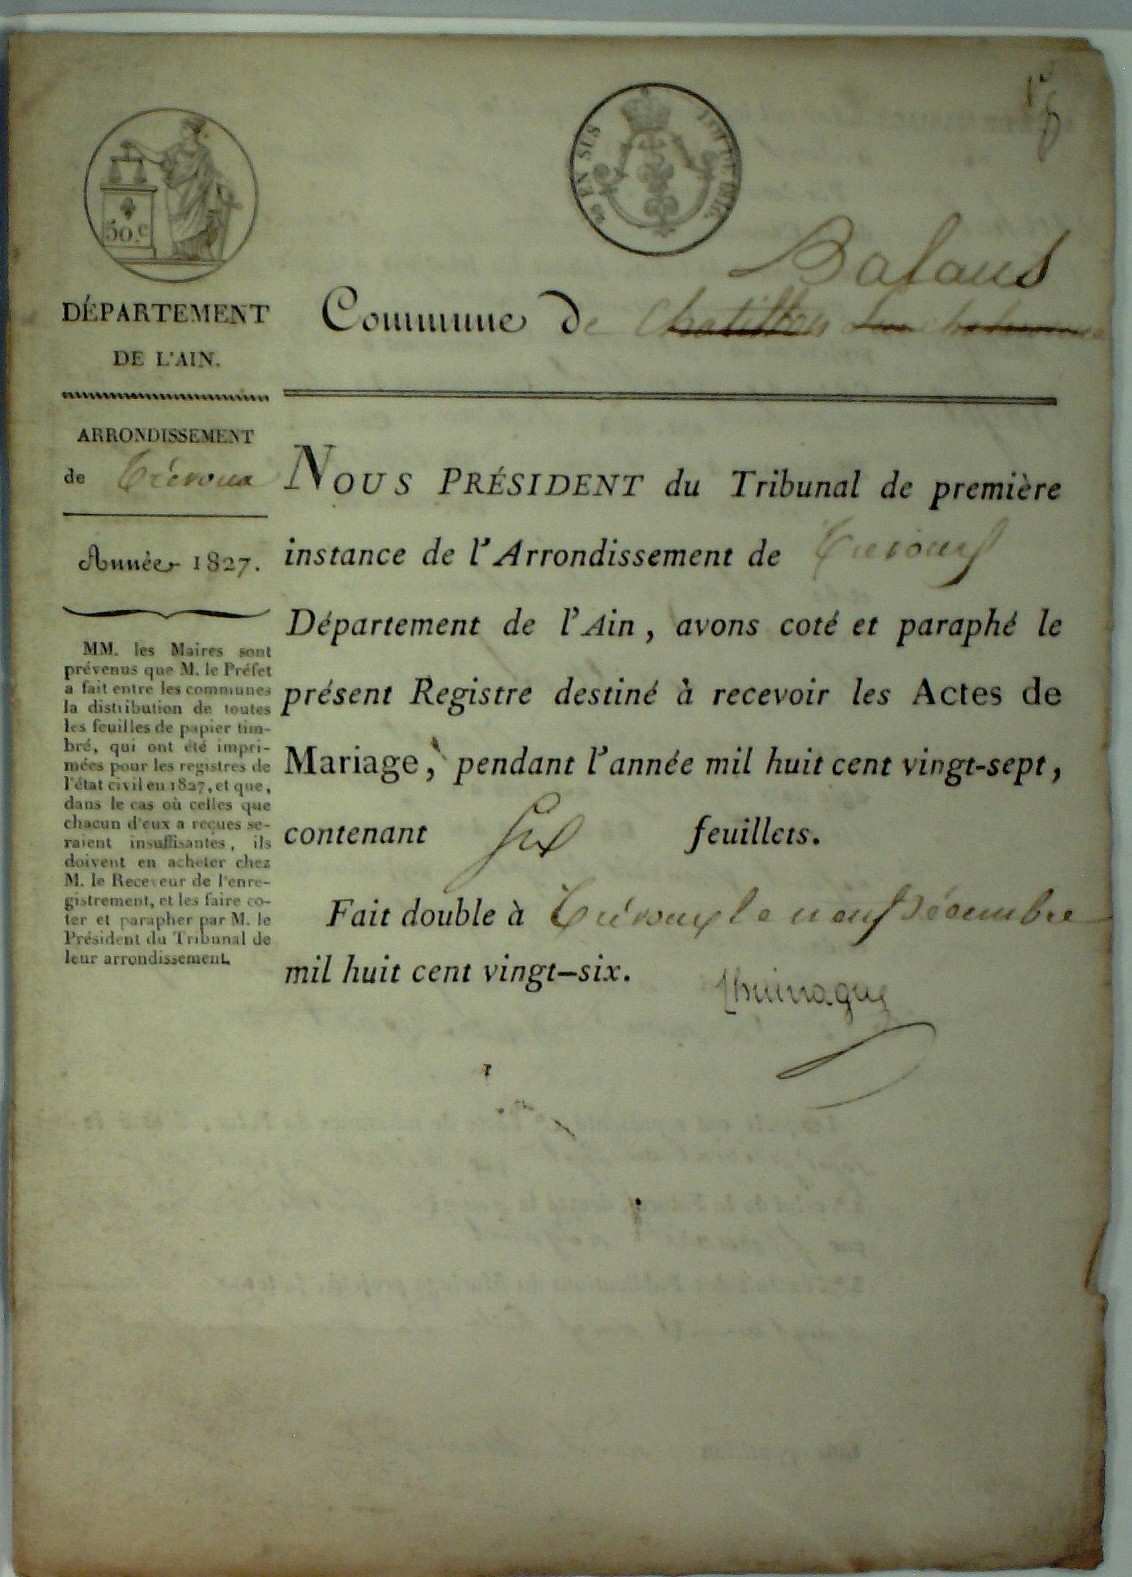 50.c
EN SUS
DÉPARTEMENT
DE L'AIN.
ARRONDISSEMENT
de Trévoux
Année 1827.
MM. les Maires sont
prévenus que M. le Préfet
a fait entre les communes
la distribution de toutes
les feuilles de papier tim-
bré, qui ont été impri-
mées pour les registres de
l'état civil en 1827, et que,
dans le cas où celles que
chacun d'eux a reçues se-
raient insuffisantes, ils
doivent en acheter chez
M. le Receveur de l'enre-
gistrement, et les faire co-
ter et parapher par M. le
Président du Tribunal de
leur arrondissement.
Balans
Commune de Chatillon
NOUS PRÉSIDENT du Tribunal de première
instance de l'Arrondissement de Trevoux
Département de l'Ain, avons coté et paraphé le
présent Registre destiné à recevoir les Actes de
Mariage, pendant l'année mil huit cent vingt-sept,
contenant six feuillets.
Fait double à Trévoux le neuf Décembre
mil huit cent vingt-six.